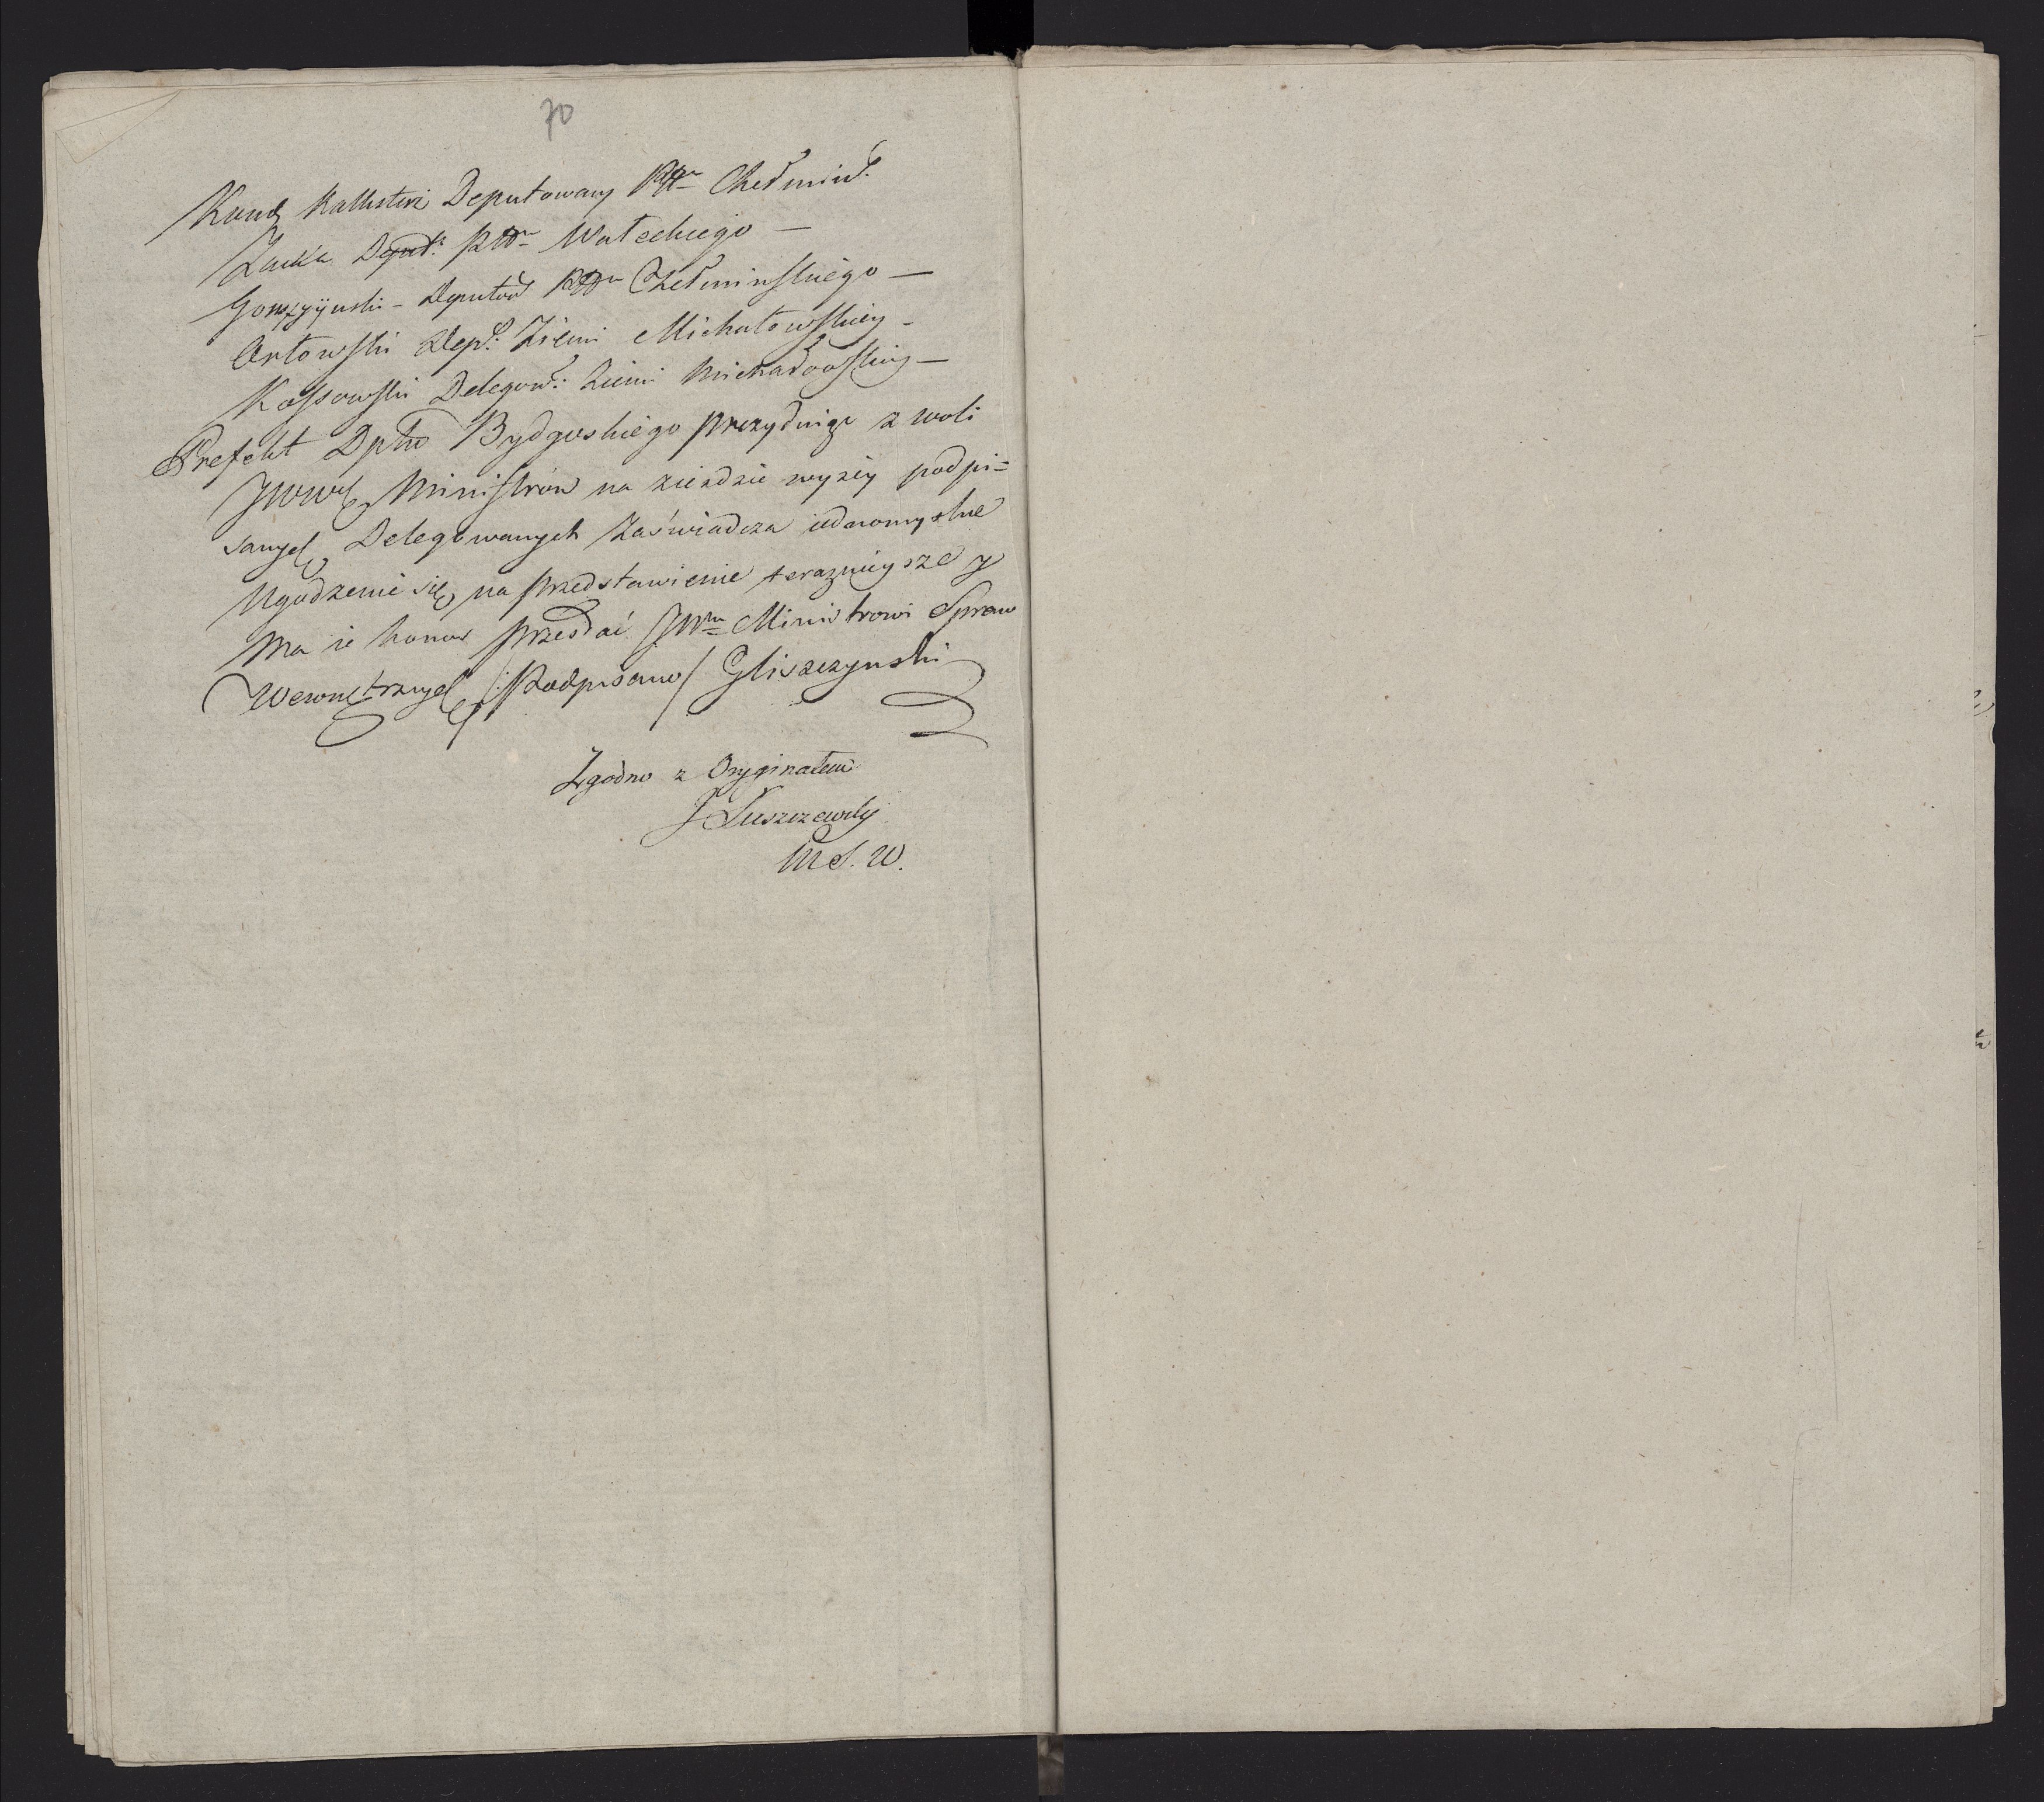 70
Deputowany Pttu Chełmiń.
Deput: Pttu Wałeckiego —
Deputow Pttu Chełminskiego —
Orłowski Dep: Ziemi Michałowskiey —
Kossowski Delegow: Ziemi Michałowskiey —
Prefekt Dptto Bydgoskiego prezyduiąc z woli
JWWch Ministrów na zieździe wyżey podpi=
sanych Delegowanych zaświadcza iednomyslne
zgodzenie się na przedstawienie teraznieysze y
ma ie honor przesłać JWmu Ministrowi Spraw
Wewnętrznych /:Podpisano/ Gliszczynski
Zgodno z Oryginałem
J Łuszczewsky
M S. W.